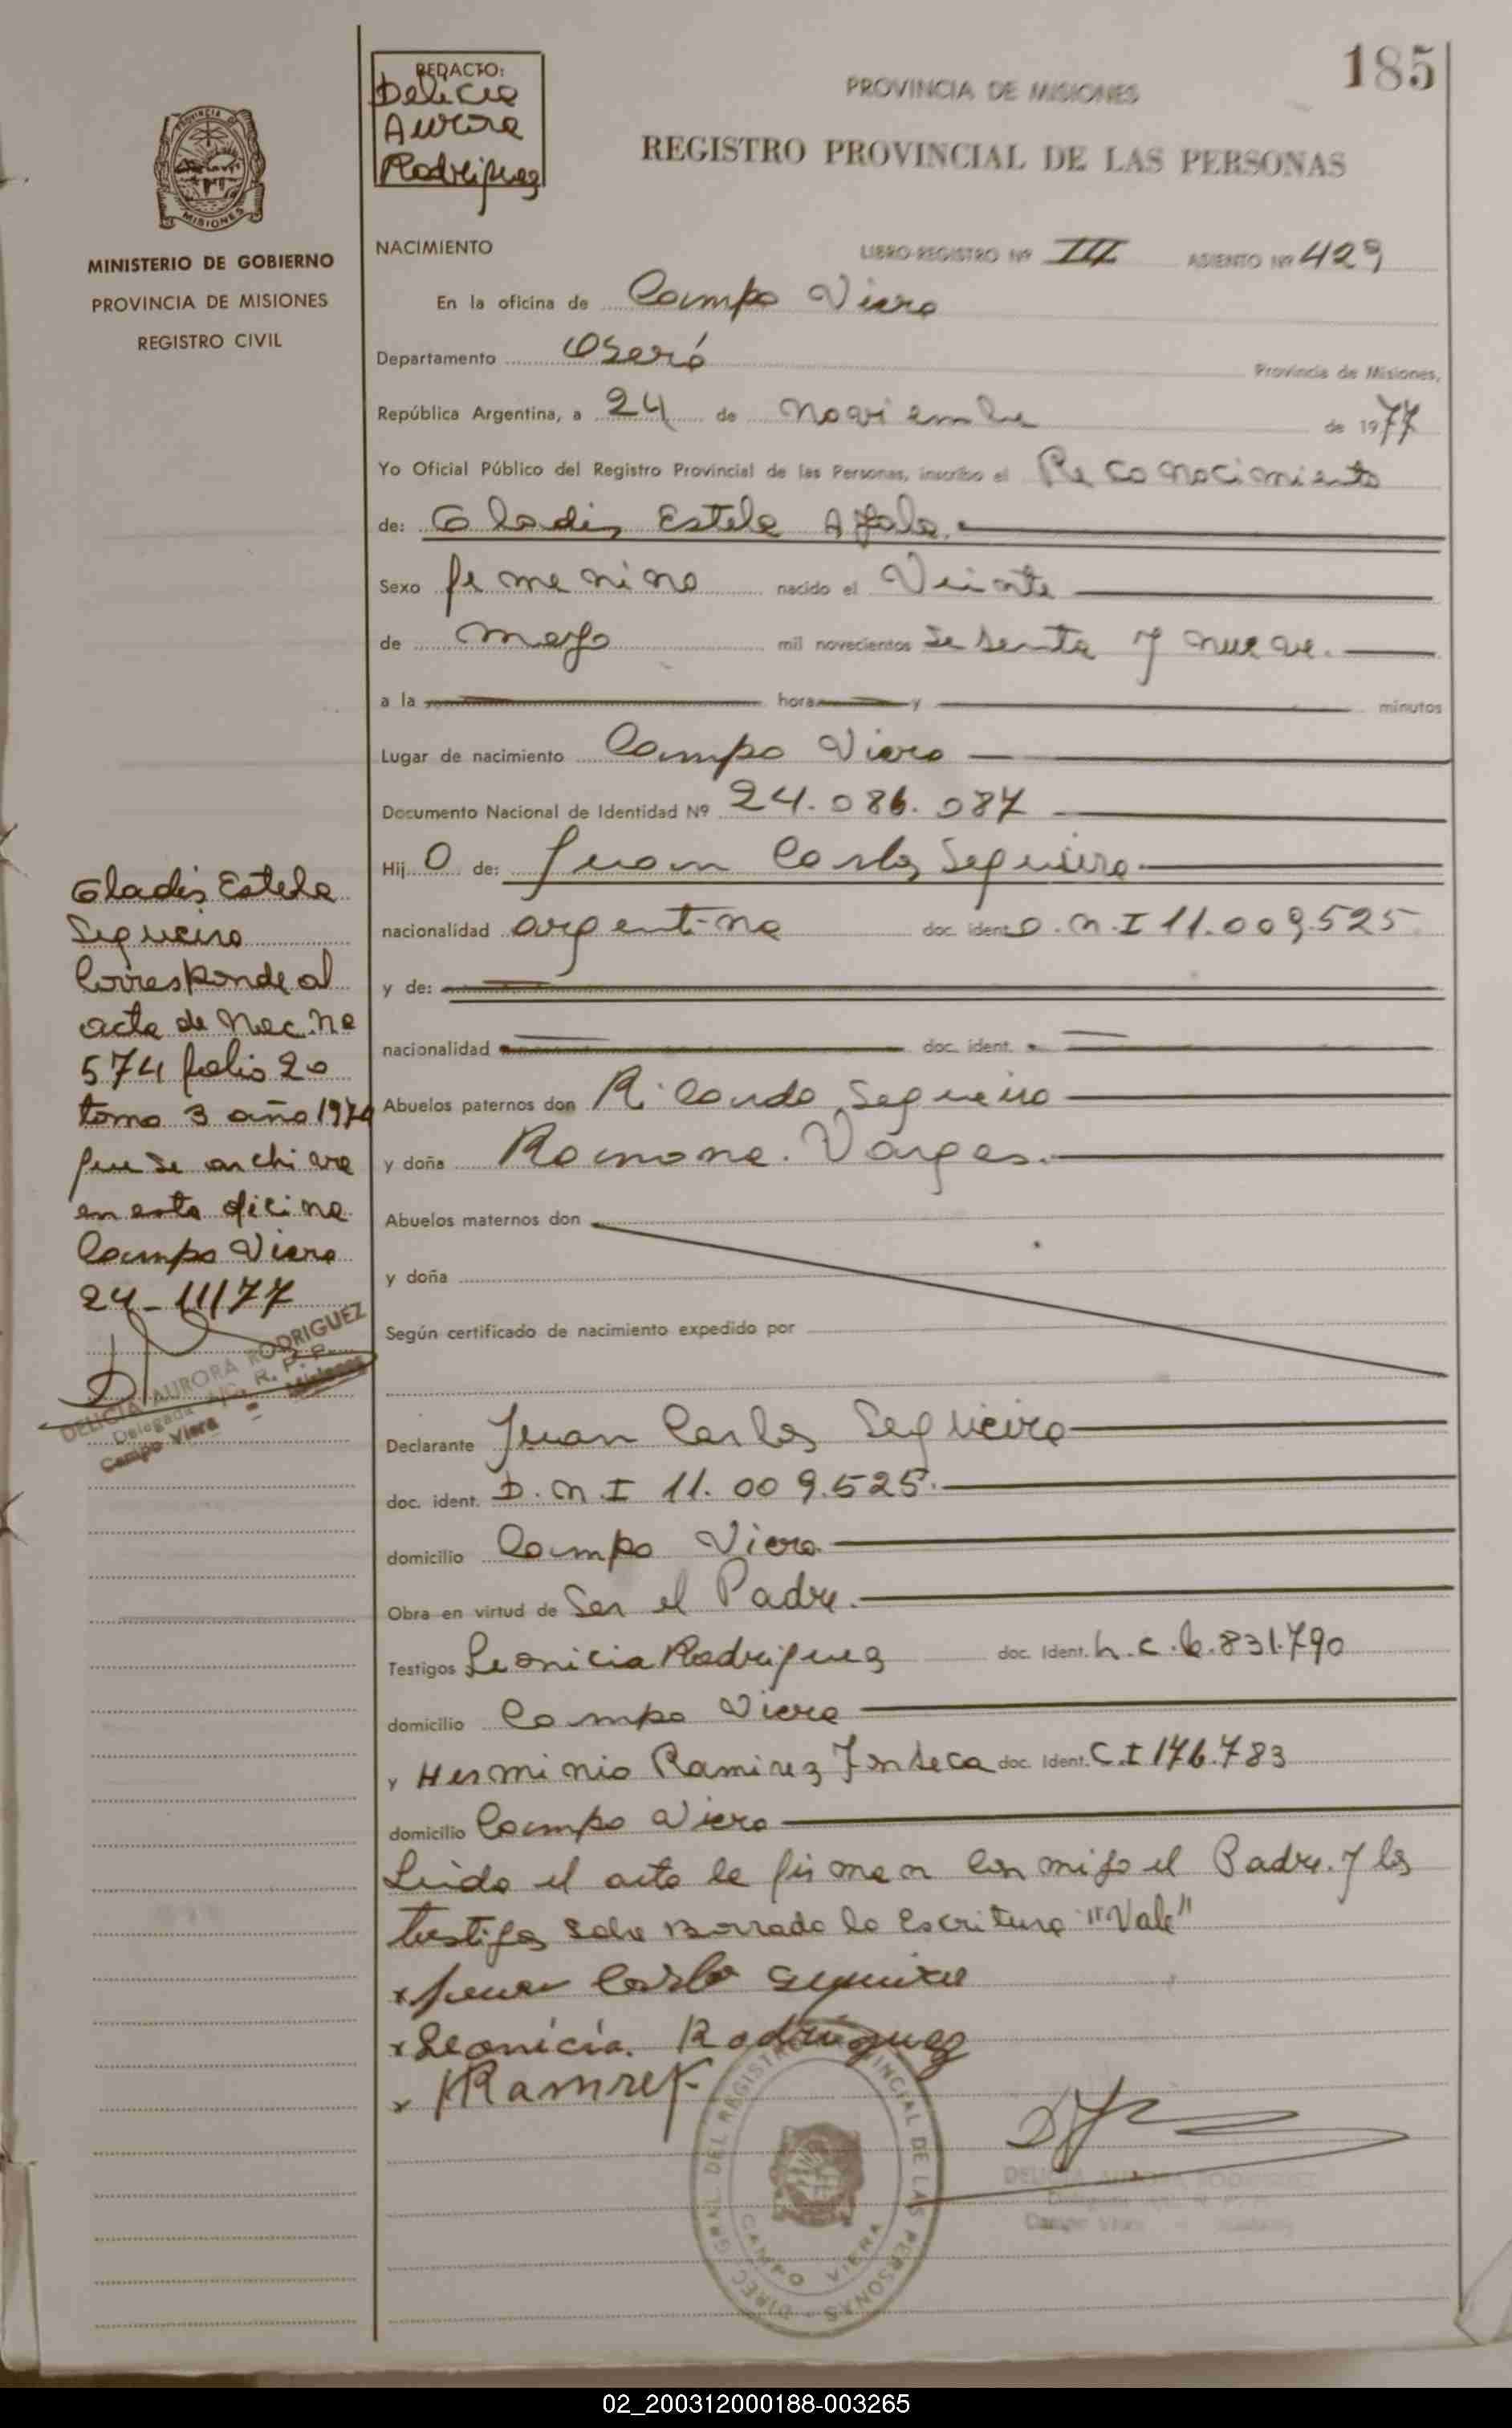 185
REDACTO:
Delicia
Aurora
Rodriguez
PROVINCIA DE MISIONES
REGISTRO PROVINCIAL DE LAS PERSONAS
PROVINCIA DE
MISIONES
MINISTERIO DE GOBIERNO
PROVINCIA DE MISIONES
REGISTRO CIVIL
NACIMIENTO LIBRO REGISTRO Nº III ASIENTO Nº 429
En la oficina de Campo Viera
Departamento Oberá Provincia de Misiones,
República Argentina, a 24 de noviembre de 1977
Yo Oficial Público del Registro Provincial de las Personas, inscribo el Reconocimiento
de: Gladis Estela Ayala.
Sexo femenino nacido el Veinte
de mayo mil novecientos sesenta y nueve.
a la hora y minutos
Lugar de nacimiento Campo Viera
Documento Nacional de Identidad Nº 24.086.087
Hij O de: Juan Carlos Sequeira
nacionalidad argentina doc. ident. D.N.I 11.009.525
y de:
nacionalidad doc. ident.
Abuelos paternos don Ricardo Sequeira
y doña Ramona Vargas.
Abuelos maternos don
y doña
Según certificado de nacimiento expedido por
Declarante Juan Carlos Sequeira
doc. ident. D.N.I 11.009.525.
domicilio Campo Viera
Obra en virtud de Ser el Padre.
Testigos Leonicia Rodriguez doc. Ident. L.C.6.831.790
domicilio Campo Viera
y Herminio Ramirez Fonseca doc. Ident. C.I 176.783
domicilio Campo Viera
Leida el acta la firman conmigo el Padre y los
testigos sobre Borrado la escritura "Vale"
x Juan Carlo Sequeira
x Leonicia Rodriguez
x HRamirez
Gladis Estela
Sequeira
Corresponde al
acta de Nac. Nº
574 folio 20
tomo 3 año 1974
que se archiva
en esta oficina
Campo Viera
24-11/77
DELICIA AURORA RODRIGUEZ
Delegada A/C. R. P. P.
Campo Viera - Misiones
DIREC. GRAL. DEL REGISTRO PROVINCIAL DE LAS PERSONAS
CAMPO VIERA
DELICIA AURORA RODRIGUEZ
Campo Viera - Misiones
02_200312000188-003265